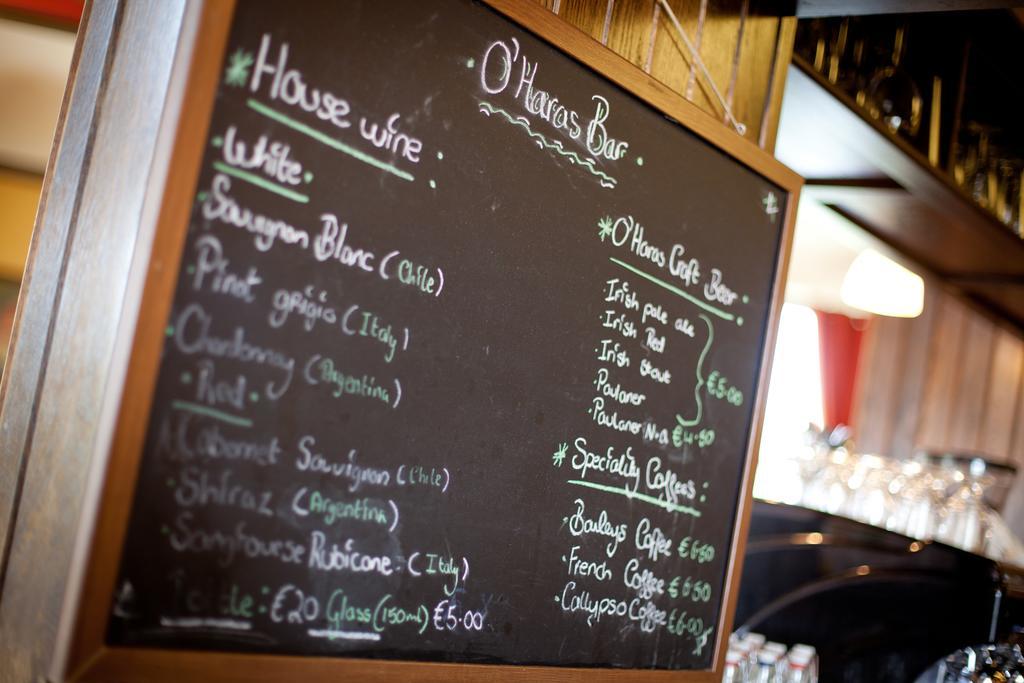 O'Haras Bar.
* House wine :
. White .
. Sauvignon Blanc (Chile)
. Pinot grigio (Italy)
. Chardonnay (Argentina)
. Red .
Cabernet Sauvignon (Chile)
. Shiraz (Argentina)
. Sanghovese Rubicone (Italy)
: €20 Glass (150ml) €5.00
* O'Haras Craft Beer .
. Irish pale ale
. Irish Red
. Irish Stout
. Paulaner
€5.00
. Paulaner N.A €4.50
* Speciality Coffees :
. Baileys Coffee €6.50
. French Coffee €6.50
. Callypso Coffee €6.00